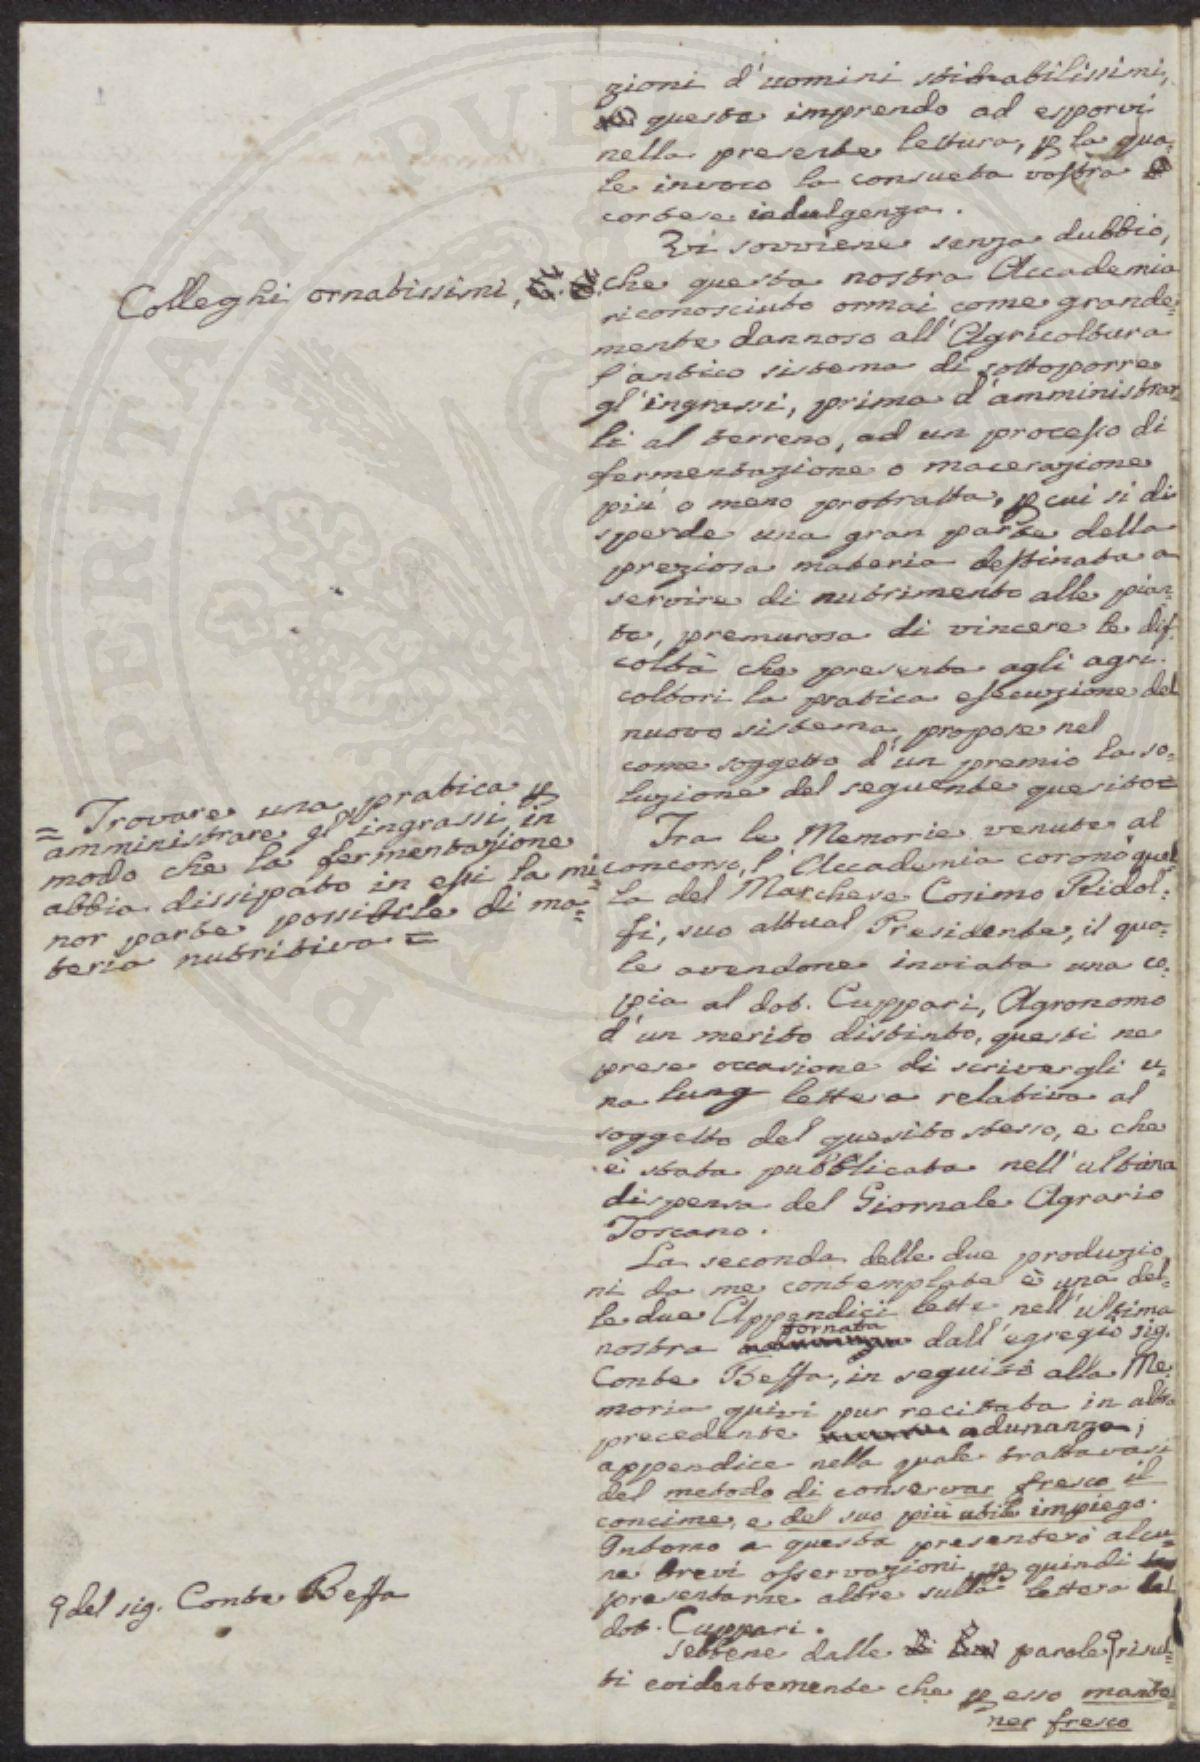 zioni d'uomini stimabilissimi,
questa imprendo ad esporvi
nella presente lettura, p la qua=
le invoco la consueta vostra
cortese indulgenza.
Vi sovviene senza dubbio,
Colleghi ornatissimi,
che questa nostra Accademia
riconosciuto ormai come grande=
mente dannoso all'Agricoltura
l'antico sistema di sottoporre
gl'ingrassi, prima d'amministrar
li al terreno, ad un processo di
fermentazione o macerazione
più o meno protratta, p cui si di
sperde una gran parte della
preziosa materia destinata a
servire di nutrimento alle pian=
te, premurosa di vincere le dif=
coltà che presenta agli agri=
coltori la pratica esecuzione del
nuovo sistema, propose nel
come soggetto d'un premio la so=
luzione del seguente quesito=
= Trovare una pratica p
amministrare gl'ingrassi in
modo che la fermentazione
abbia dissipato in essi la mi=
nor parte possibile di ma=
teria nutritiva =
Tra le Memorie venute al
concorso, l'Accademia coronò quel
la del Marchese Cosimo Ridol=
fi, suo attual Presidente, il qua=
le avendone inviata una co=
pia al dot. Cuppari, Agronomo
d'un merito distinto, questi ne
prese occasione di scrivergli u=
na lung lettera relativa al
soggetto del quesito stesso, e che
è stata pubblicata nell'ultima
dispensa del Giornale Agrario
Toscano.
La seconda delle due produzio
ni da me contemplate è una del=
le due Appendici lette nell'ultima
tornata
nostra dall'egregio sig.
Conte Beffa, in seguito alla Me=
moria quivi pur recitata in altra
precedente adunanza;
appendice nella quale trattavasi
del metodo di conservar fresco il
concime, e del suo più utile impiego.
Intorno a questa presenterò alcu=
ne brevi osservazioni, p quindi
presentarne altre sulla lettera del
dot. Cuppari.
Sebbene dalle parole risul=
del sig. Conte Beffa
ti evidentemente che p esso mante=
ner fresco